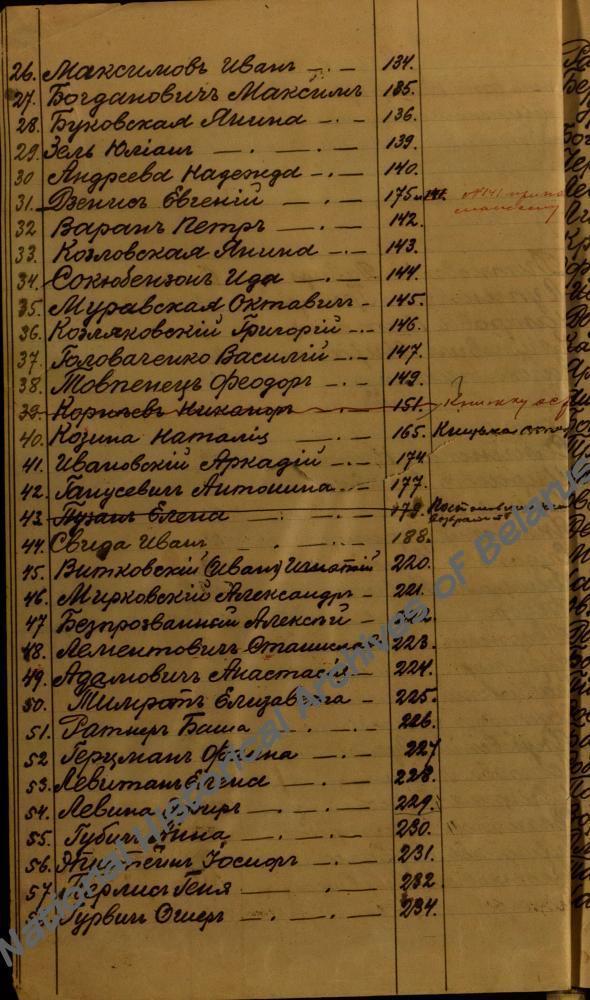 26. Максимовъ Иванъ — . — 134.
27. Богдановичъ Максимъ 135.
28. Буковская Янина — . — 136.
29. Зель Юліанъ — . — 139.
30 Андреева Надежда — . — 140.
31. Денисъ Евгеній — . — 175
32 Варанъ Петръ — . — 142.
33. Козловская Янина — . — 143.
34. Ида — . — 144.
35. Муравская Октавія — 145.
36. Козляковскій Григорій — . — 146.
37. Головаченко Василій — . — 147.
38. Мовпенецъ Феодоръ — . — 149.
39. Корнѣевъ Никаноръ 151. Книжку
40. Козина Наталія — . — 165.
41. Ивановскій Аркадій — . — 174
42. Ганусевичъ Антонина — . — 177.
43. Пузанъ Елена — . — 179.
44. Свида Иванъ . — . — 188.
45. Витковскій (Иванъ) Игнатій 220.
46. Мирковскій Александръ — 221.
47 Безпрозванный Алексѣй — 222.
48. Лементовичъ Станиславъ 223.
49. Адамовичъ Анастасія — 224.
50. Тимротъ Елизавета — 225.
51. Ратнеръ Баша — . — . — 226.
52 Герцманъ — . — 227
53. Левитанъ — . — 228.
54. Левина — . — . — 229.
55. Губичъ — . — . — 230.
56. Іосифъ — . — 231.
57 Берлисъ Геня — . — 232
Гурвичъ Ошеръ — . — . — 234.
National Historical Archives of Belarus